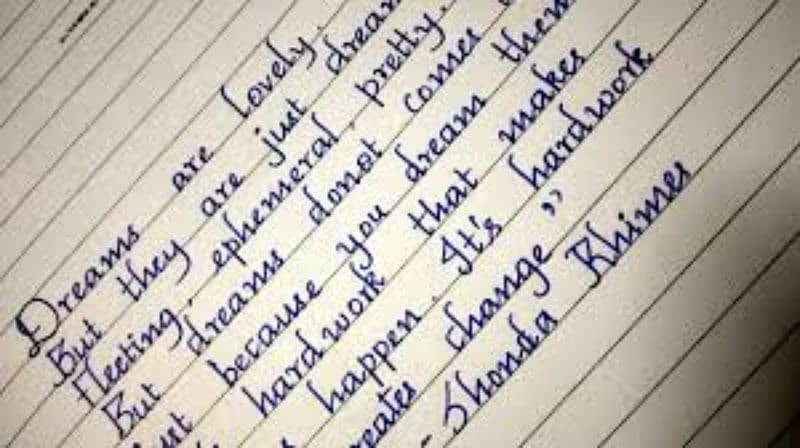 Dreams are lovely.
But they are just dream
Fleeting, ephemeral, pretty.
But dreams donot comes
because you dream them
hardwork that makes
happen. It's hardwork
change"
- Shonda Rhimes